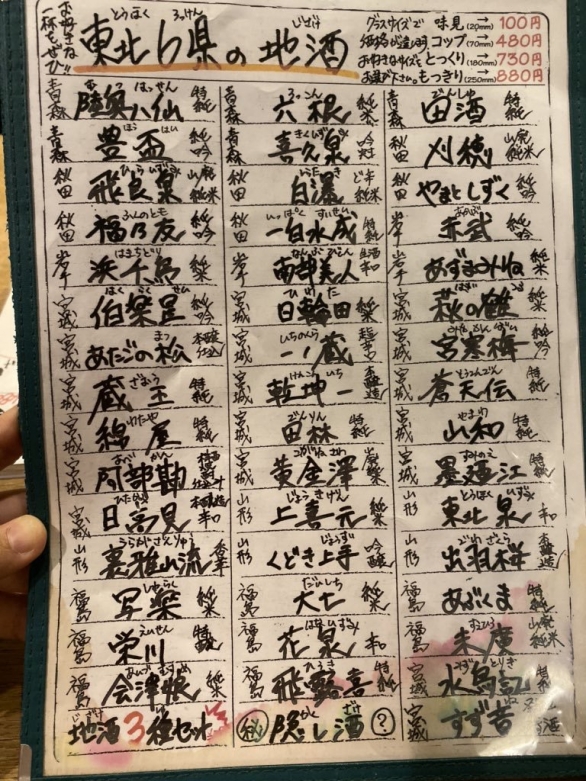 お好きな!!
一杯をぜひ!!
東北6県の地酒
とうほく ろっけん じざけ
グラスサイズで 味見(20mm)→100円
価格が違います コップ(70mm)→480円
お好きなサイズで とっくり(180mm)→730円
お選び下さい。もっきり(250mm)→880円
青森 陸奥八仙 特純
青森 六根 純米
青森 田酒 特純
青森 豊盃 純吟
青森 喜久泉 吟
秋田 刈穂 山廃純米
秋田 飛良泉 山廃純米
秋田 白瀑 純米
秋田 やまとしずく 純吟
秋田 福乃友 純吟
秋田 一白水成 特純
岩手 赤武 純吟
岩手 浜千鳥 純米
岩手 南部美人
岩手 あずまみね 純米
宮城 伯楽星 純吟
宮城 日輪田 純米
宮城 萩の鶴 特純
宮城 あたごの松 本醸仕込
宮城 一ノ蔵
宮城 宮寒梅 純吟
宮城 蔵王 特純
宮城 乾坤一 本醸造
宮城 蒼天伝 特純
宮城 綿屋 特純
宮城 田林 特純
宮城 山和 特純
宮城 阿部勘
宮城 黄金澤 純米
宮城 墨廼江 特純
宮城 日高見 本醸造 辛口
山形 上喜元 純米
山形 東北泉 本辛
山形 裏雅山流 香華
山形 くどき上手 吟醸
山形 出羽桜 本醸造
福島 写楽 純米
福島 大七 純米
福島 あぶくま 特純
福島 栄川 特醸
福島 花泉 本辛
福島 末廣 山廃純米
福島 会津娘 純米
福島 飛露喜 特純
宮城 水鳥記 特純
地酒3種セット
㊙ 隠し酒 ?
宮城 すず音